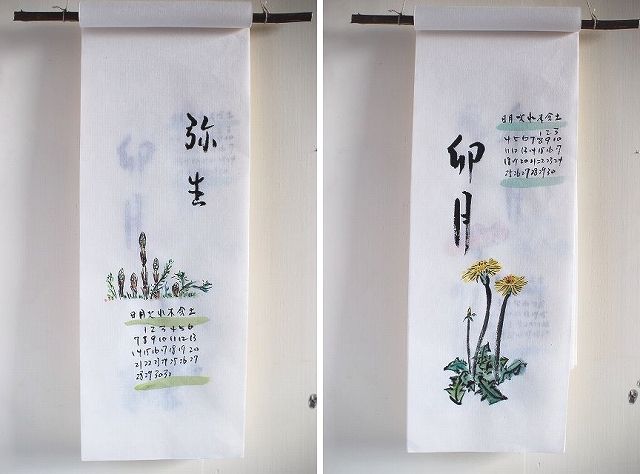 弥生
日月火水木金土
1 2 3 4 5 6
7 8 9 10 11 12 13
14 15 16 17 18 19 20
21 22 23 24 25 26 27
28 29 30 31
卯月
日月火水木金土
1 2 3
4 5 6 7 8 9 10
11 12 13 14 15 16 17
18 19 20 21 22 23 24
25 26 27 28 29 30